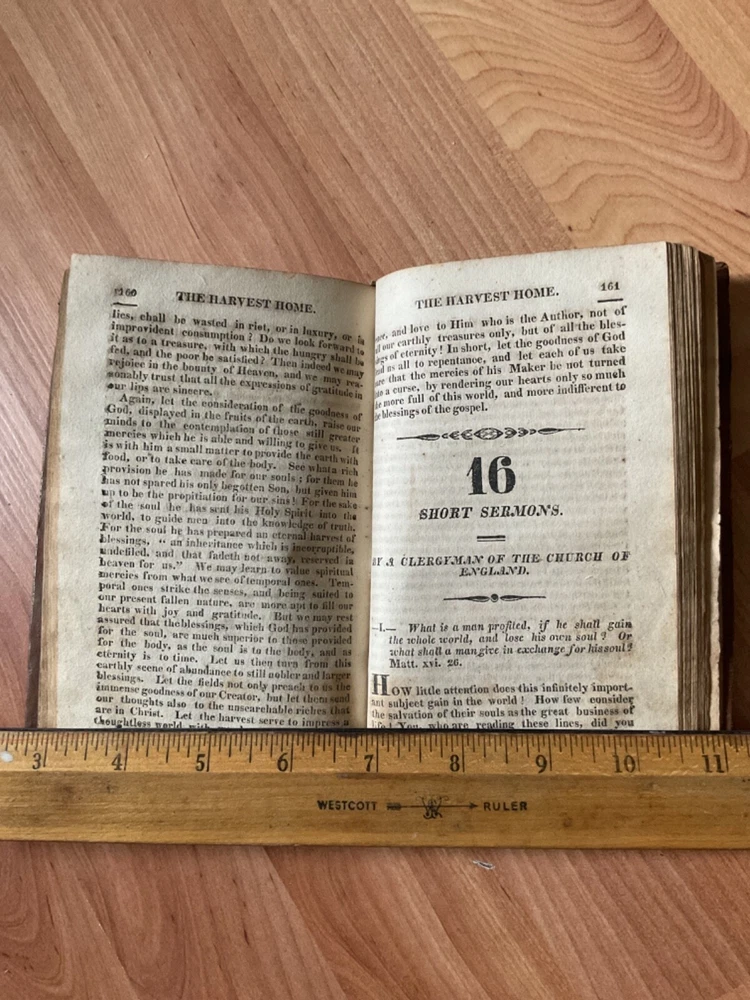 160
THE HARVEST HOME.
lies, shall be wasted in riot, or in luxury, or in
improvident consumption? Do we look forward to
it as to a treasure, with which the hungry shall be
fed, and the poor be satisfied? Then indeed we may
rejoice in the bounty of Heaven, and we may rea-
sonably trust that all the expressions of gratitude in
our lips are sincere.
Again, let the consideration of the goodness of
God, displayed in the fruits of the earth, raise our
minds to the contemplation of those still greater
mercies which he is able and willing to give us. It
is with him a small matter to provide the earth with
food, or to take care of the body. See what a rich
provision he has made for our souls; for them he
has not spared his only begotten Son, but given him
up to be the propitiation for our sins! For the sake
of the soul he has sent his Holy Spirit into the
world, to guide men into the knowledge of truth.
For the soul he has prepared an eternal harvest of
blessings, "an inheritance which is incorruptible,
undefiled, and that fadeth not away, reserved in
heaven for us." We may learn to value spiritual
mercies from what we see of temporal ones. Tem-
poral ones strike the senses, and being suited to
our present fallen nature, are more apt to fill our
hearts with joy and gratitude. But we may rest
assured that the blessings, which God has provided
for the soul, are much superior to those provided
for the body, as the soul is to the body, and as
eternity is to time. Let us then turn from this
earthly scene of abundance to still nobler and larger
blessings. Let the fields not only preach to us the
immense goodness of our Creator, but let them send
our thoughts also to the unsearchable riches that
are in Christ. Let the harvest serve to impress a
thoughtless world with
THE HARVEST HOME.
161
and love to Him who is the Author, not of
our earthly treasures only, but of all the bles-
of eternity! In short, let the goodness of God
us all to repentance, and let each of us take
that the mercies of his Maker be not turned
a curse, by rendering our hearts only so much
more full of this world, and more indifferent to
blessings of the gospel.
16
SHORT SERMONS.
BY A CLERGYMAN OF THE CHURCH OF
ENGLAND.
—I.— What is a man profited, if he shall gain
the whole world, and lose his own soul? Or
what shall a man give in exchange for his soul?
Matt. xvi. 26.
HOW little attention does this infinitely import-
ant subject gain in the world! How few consider
the salvation of their souls as the great business of
life! You, who are reading these lines, did you
3 4 5 6 7 8 9 10 11
WESTCOTT RULER